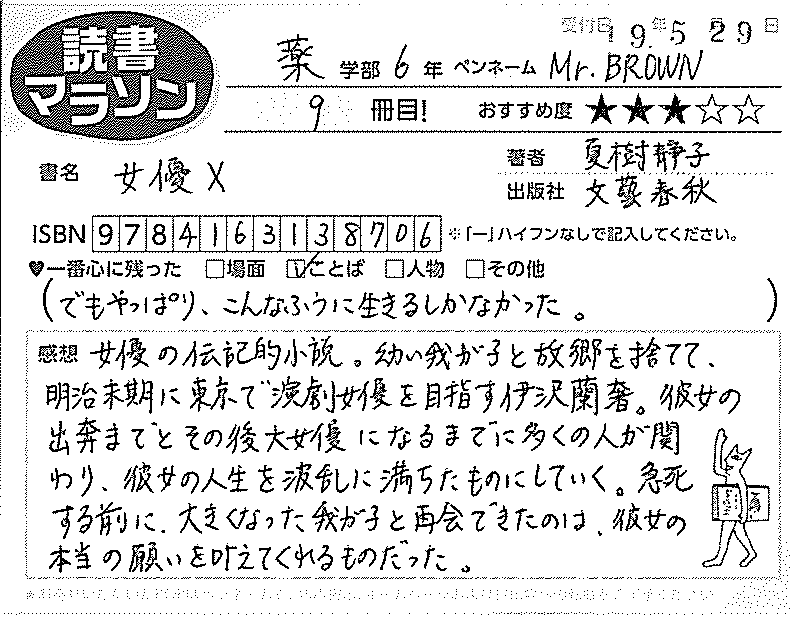 読書
マラソン
受付日 19年 5月 29日
薬 学部 6 年 ペンネーム Mr. BROWN
9 冊目! おすすめ度 ★★★☆☆
書名 女優X
著者 夏樹静子
出版社 文藝春秋
ISBN 9784163138706 ※「ー」ハイフンなしで記入してください。
♥一番心に残った □場面 ☑ことば □人物 □その他
(でもやっぱり、こんなふうに生きるしかなかった。)
感想 女優の伝記的小説。幼い我が子と故郷を捨てて、
明治末期に東京で演劇女優を目指す伊沢蘭奢。彼女の
出奔までとその後大女優になるまでに多くの人が関
わり、彼女の人生を波乱に満ちたものにしていく。急死
する前に、大きくなった我が子と再会できたのは、彼女の
本当の願いを叶えてくれるものだった。